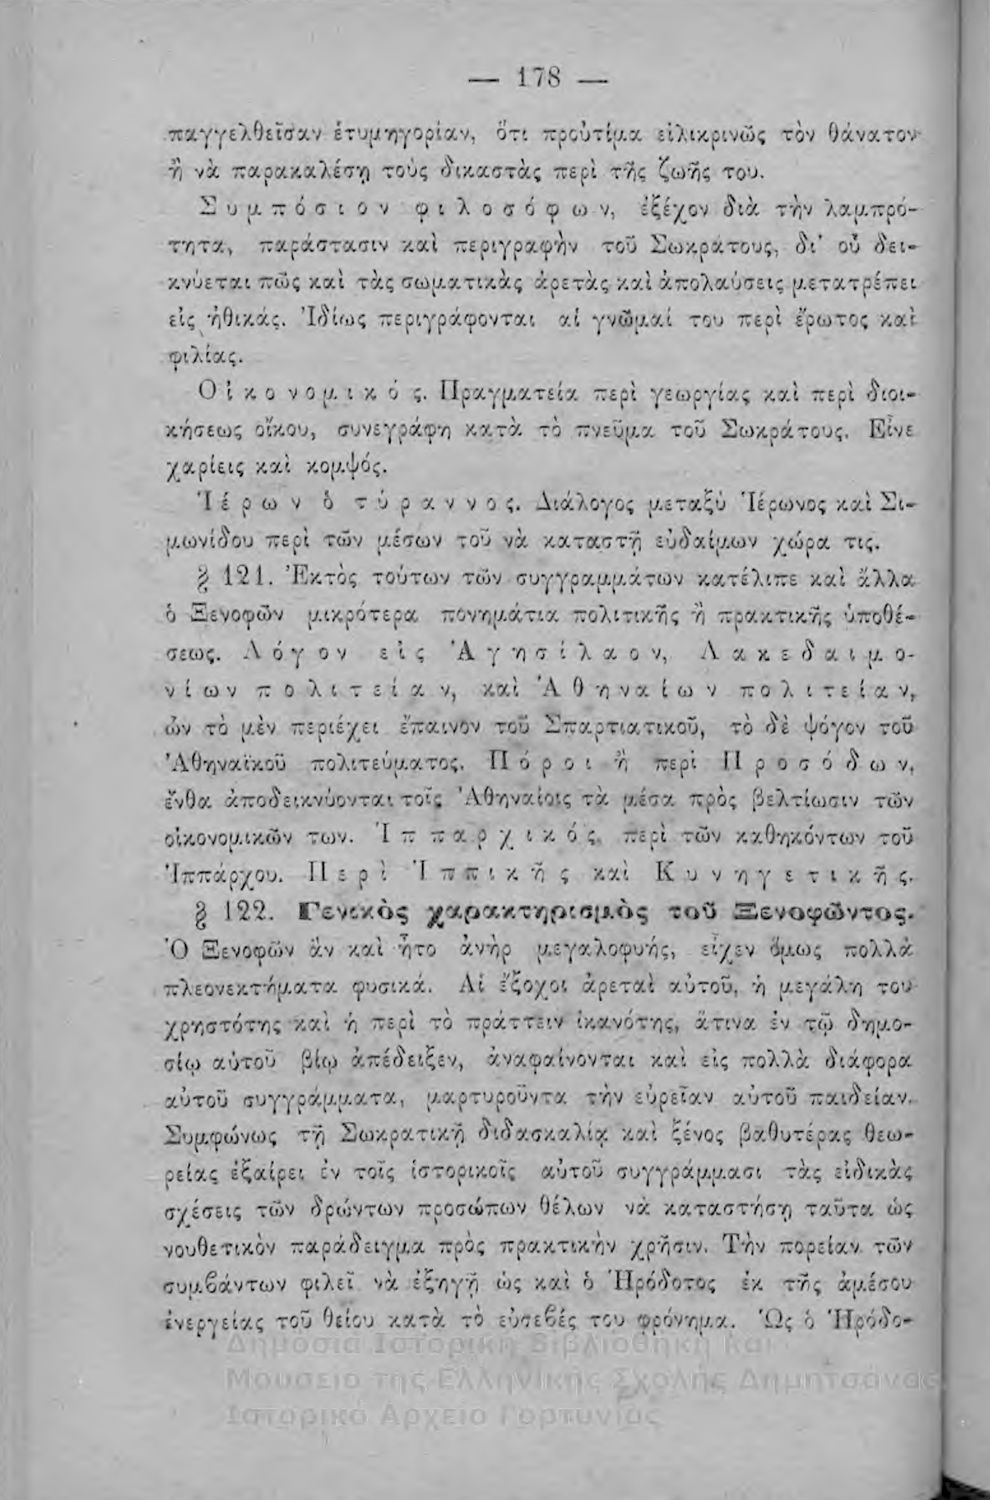 — 178 —
παγγελθεῖσαν ἐτυμηγορίαν, ὅτι προὐτίμα εἰλικρινῶς τὸν θάνατον
ἢ νὰ παρακαλέσῃ τοὺς δικαστὰς περὶ τῆς ζωῆς του.
Συμπόσιον φιλοσόφων, ἐξέχον διὰ τὴν λαμπρό-
τητα, παράστασιν καὶ περιγραφὴν τοῦ Σωκράτους, δι' οὗ δει-
κνύεται πῶς καὶ τὰς σωματικὰς ἀρετὰς καὶ ἀπολαύσεις μετατρέπει
εἰς ἠθικάς. Ἰδίως περιγράφονται αἱ γνῶμαί του περὶ ἔρωτος καὶ
φιλίας.
Οἰκονομικός. Πραγματεία περὶ γεωργίας καὶ περὶ διοι-
κήσεως οἴκου, συνεγράφη κατὰ τὸ πνεῦμα τοῦ Σωκράτους. Εἶνε
χαρίεις καὶ κομψός.
Ἱέρων ὁ τύραννος. Διάλογος μεταξὺ Ἱέρωνος καὶ Σι-
μωνίδου περὶ τῶν μέσων τοῦ νὰ καταστῇ εὐδαίμων χώρα τις.
§ 121. Ἐκτὸς τούτων τῶν συγγραμμάτων κατέλιπε καὶ ἄλλα
ὁ Ξενοφῶν μικρότερα πονημάτια πολιτικῆς ἢ πρακτικῆς ὑποθέ-
σεως. Λόγον εἰς Ἀγησίλαον, Λακεδαιμο-
νίων πολιτείαν, καὶ Ἀθηναίων πολιτείαν,
ὧν τὸ μὲν περιέχει ἔπαινον τοῦ Σπαρτιατικοῦ, τὸ δὲ ψόγον τοῦ
Ἀθηναϊκοῦ πολιτεύματος. Πόροι ἢ περὶ Προσόδων,
ἔνθα ἀποδεικνύονται τοῖς Ἀθηναίοις τὰ μέσα πρὸς βελτίωσιν τῶν
οἰκονομικῶν των. Ἱππαρχικός, περὶ τῶν καθηκόντων τοῦ
Ἱππάρχου. Περὶ Ἱππικῆς καὶ Κυνηγετικῆς.
§ 122. Γενικὸς χαρακτηρισμὸς τοῦ Ξενοφῶντος.
Ὁ Ξενοφῶν ἂν καὶ ἦτο ἀνὴρ μεγαλοφυής, εἶχεν ὅμως πολλὰ
πλεονεκτήματα φυσικά. Αἱ ἔξοχοι ἀρεταὶ αὐτοῦ, ἡ μεγάλη του
χρηστότης καὶ ἡ περὶ τὸ πράττειν ἱκανότης, ἅτινα ἐν τῷ δημο-
σίῳ αὐτοῦ βίῳ ἀπέδειξεν, ἀναφαίνονται καὶ εἰς πολλὰ διάφορα
αὐτοῦ συγγράμματα, μαρτυροῦντα τὴν εὐρεῖαν αὐτοῦ παιδείαν.
Συμφώνως τῇ Σωκρατικῇ διδασκαλίᾳ καὶ ξένος βαθυτέρας θεω-
ρείας ἐξαίρει ἐν τοῖς ἱστορικοῖς αὐτοῦ συγγράμμασι τὰς εἰδικὰς
σχέσεις τῶν δρώντων προσώπων θέλων νὰ καταστήσῃ ταῦτα ὡς
νουθετικὸν παράδειγμα πρὸς πρακτικὴν χρῆσιν. Τὴν πορείαν τῶν
συμβάντων φιλεῖ νὰ ἐξηγῇ ὡς καὶ ὁ Ἡρόδοτος ἐκ τῆς ἀμέσου
ἐνεργείας τοῦ θείου κατὰ τὸ εὐσεβές του φρόνημα. Ὡς ὁ Ἡρόδο-
Δημόσια Ιστορική Βιβλιοθήκη και
Μουσείο της Ελληνικής Σχολής Δημητσάνας
Ιστορικό Αρχείο Γορτυνίας